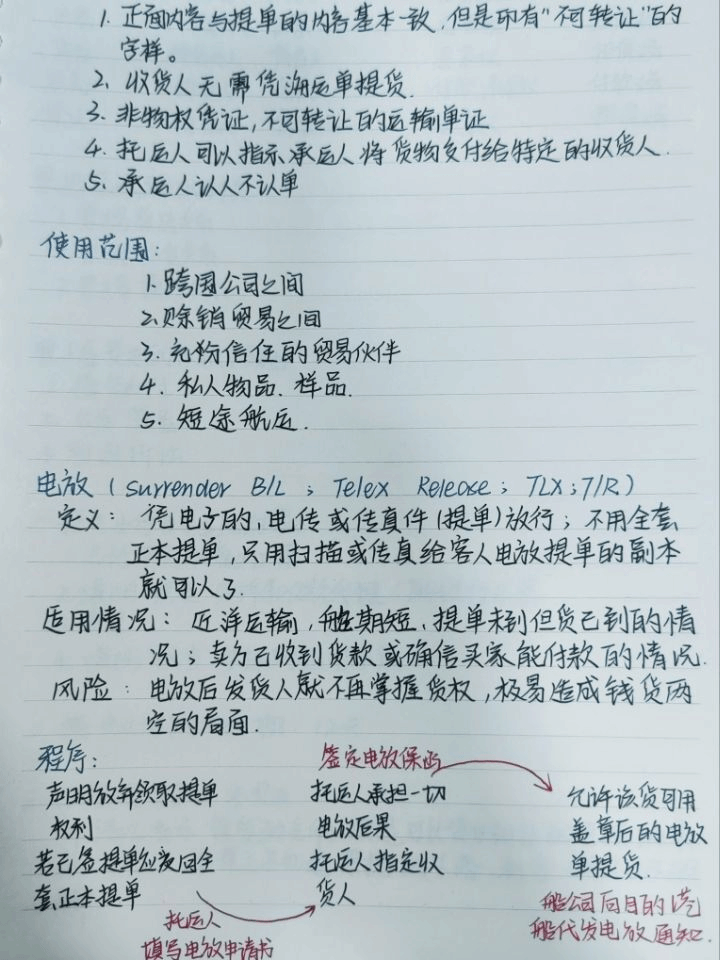 1. 正面内容与提单的内容基本一致,但是印有"不可转让"的
字样。
2. 收货人无需凭海运单提货.
3. 非物权凭证,不可转让的运输单证
4. 托运人可以指示承运人将货物交付给特定的收货人.
5. 承运人认人不认单
使用范围:
1. 跨国公司之间
2. 赊销贸易之间
3. 充份信任的贸易伙伴
4. 私人物品. 样品.
5. 短途航运.
电放 ( Surrender B/L ; Telex Release ; TLX ; T/R )
定义: 凭电子的,电传或传真件(提单)放行; 不用全套
正本提单,只用扫描或传真给客人电放提单的副本
就可以了.
适用情况: 近洋运输,船期短,提单未到但货已到的情
况; 卖方已收到货款或确信买家能付款的情况.
风险: 电放后发货人就不再掌握货权,极易造成钱货两
空的局面.
程序:
签定电放保函
声明放弃领取提单 托运人承担一切 允许该货可用
权利 电放后果 盖章后的电放
若已签提单应收回全 托运人指定收 单提货.
套正本提单 货人
托运人 船公司向目的港
填写电放申请书 船代发电放通知.